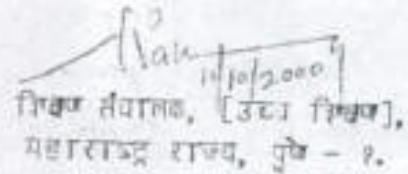 10/10/2000
शिक्षण संचालक, [उच्च शिक्षण],
महाराष्ट्र राज्य, पुणे - १.